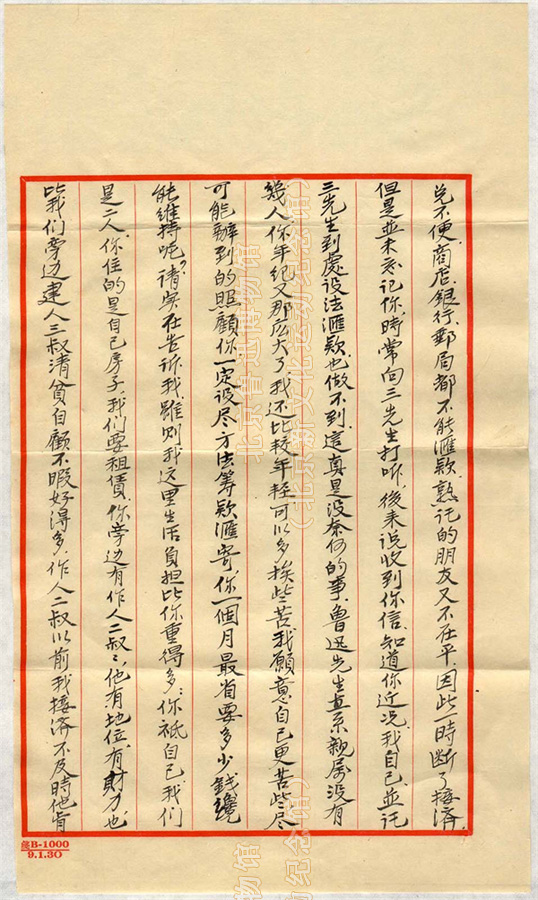 兌不便，商店，銀行，郵局都不能滙欵，熟託的朋友又不在平，因此一时断了接濟，
但是並未忘记你，時常向三先生打听，後来说收到你信，知道你近况，我自己並託
三先生到處设法滙欵也做不到，這真是没奈何的事。鲁迅先生直系親属没有
幾人，你年纪又那広大了，我还比较年輕可以多挨些苦，我願意自己更苦些，尽
可能辦到的照顧你，一定设尽方法筹欵滙寄，你一個月最省要多少錢纔
能维持呢？请实在告诉我，雖则我这里生活负担比你重得多，你祗自己，我们
是二人，你住的是自己房子，我们要租賃，你旁边有作人二叔，他有地位，有财力，也
比我们旁边建人三叔清貧自顧不暇好得多，作人二叔以前我接济不及時他肯
笺B-1000
9.1.30
北京鲁迅博物馆
（北京新文化运动纪念馆）